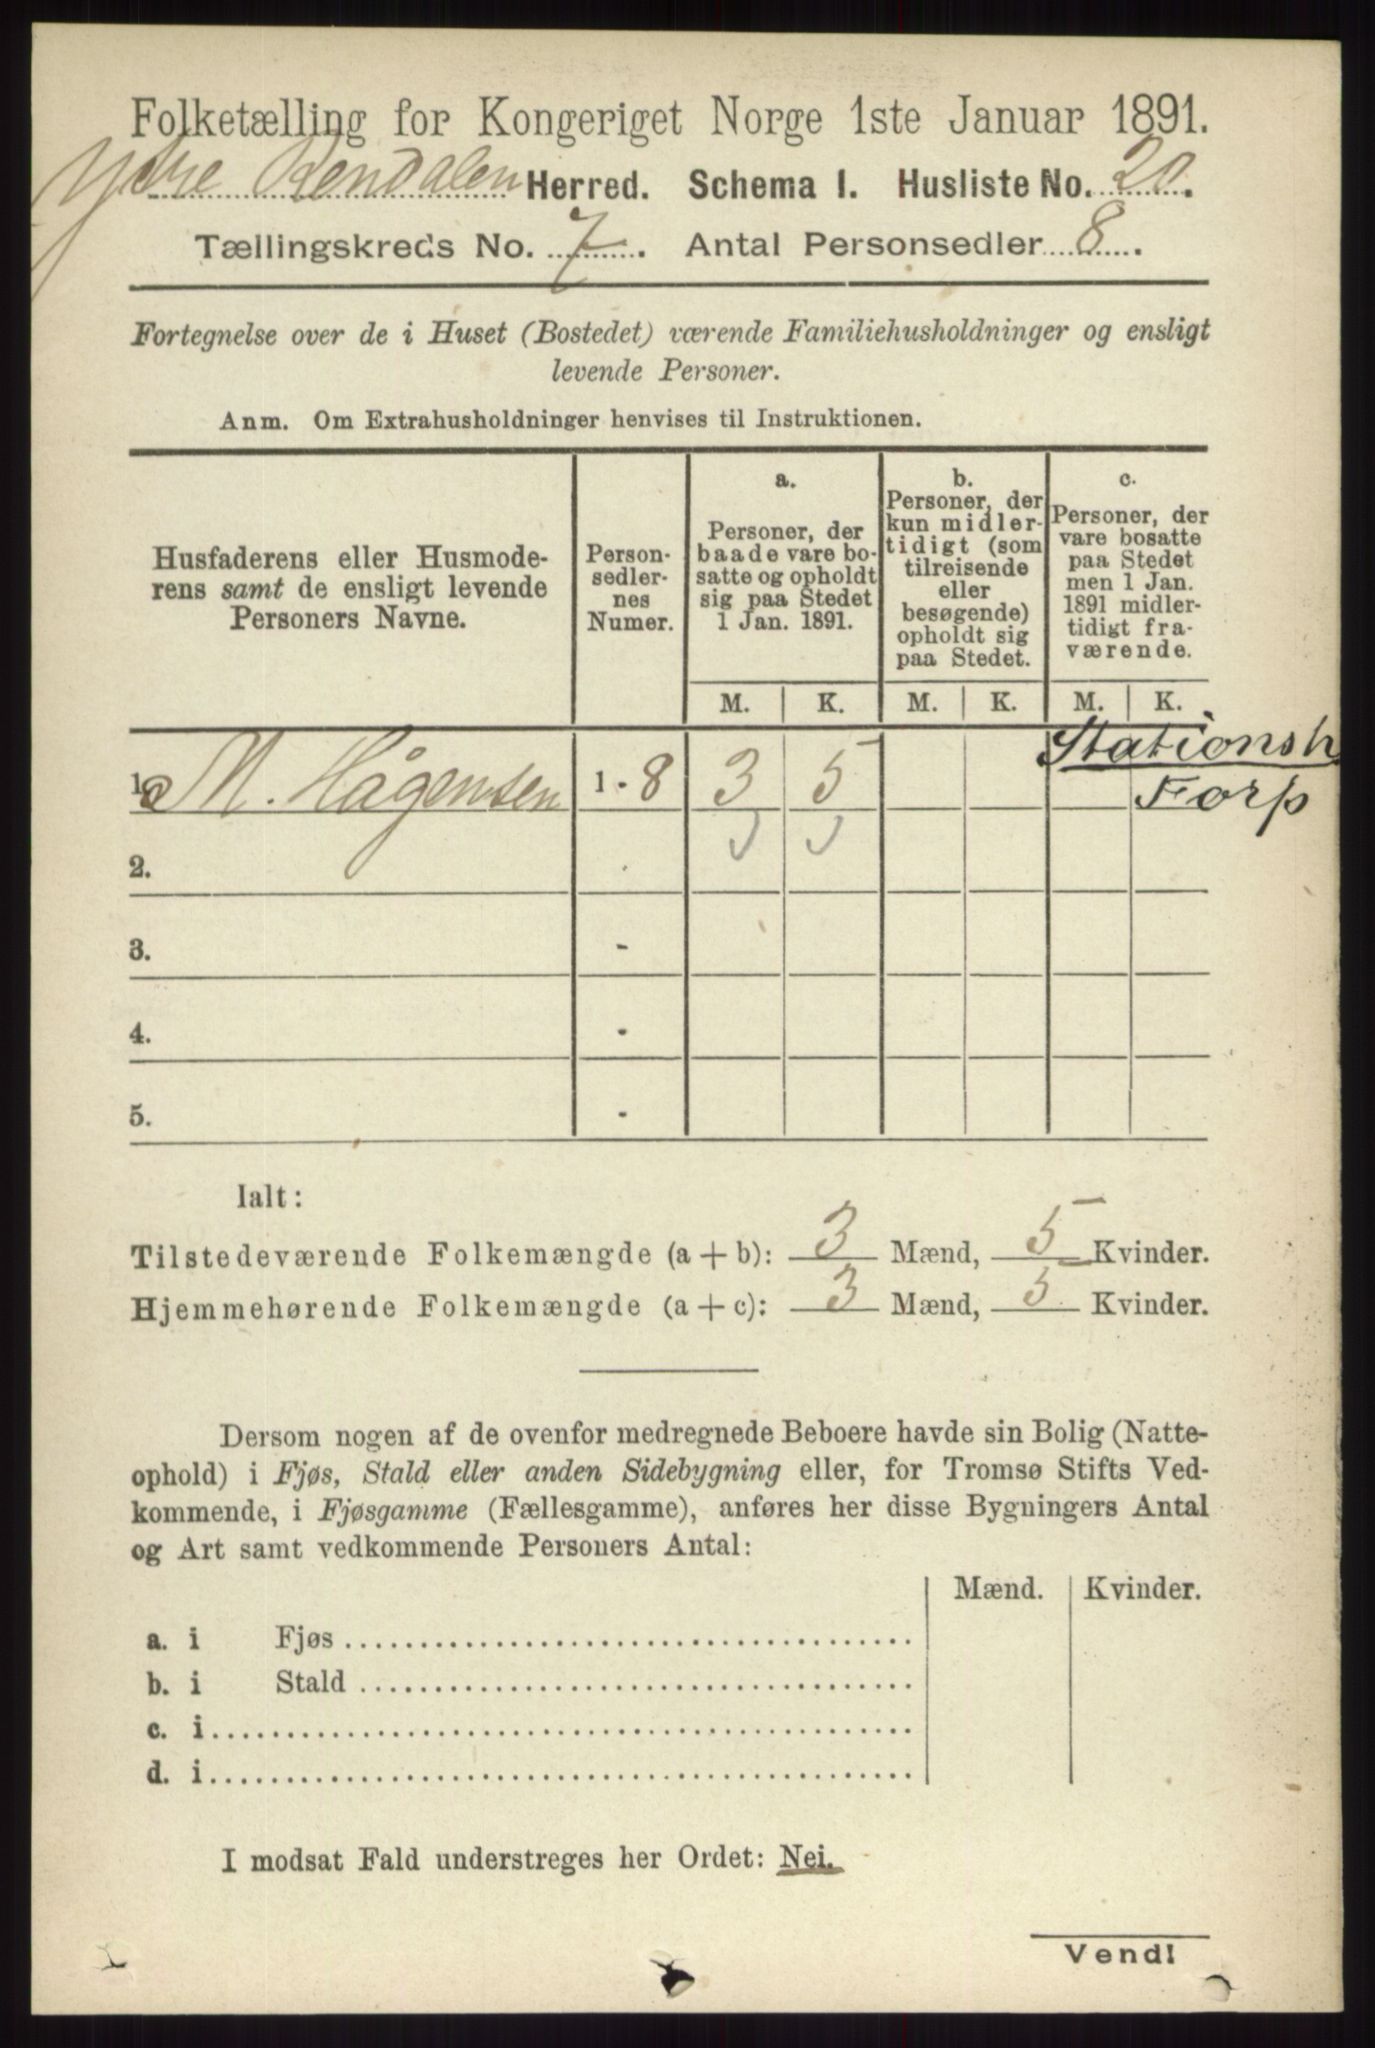 Folketælling for Kongeriget Norge 1ste Januar 1891.
Ytre Rendalen Herred. Schema I. Husliste No. 20.
Tællingskreds No. 7. Antal Personsedler 8.
Fortegnelse over de i Huset (Bostedet) værende Familiehusholdninger og ensligt
levende Personer.
Anm. Om Extrahusholdninger henvises til Instruktionen.
Husfaderens eller Husmode-
rens samt de ensligt levende
Personers Navne.
Person-
sedler-
nes
Numer.
a.
Personer, der
baade vare bo-
satte og opholdt
sig paa Stedet
1 Jan. 1891.
b.
Personer, der
kun midler-
tidigt (som
tilreisende
eller
besøgende)
opholdt sig
paa Stedet.
c.
Personer, der
vare bosatte
paa Stedet
men 1 Jan.
1891 midler-
tidigt fra-
værende.
M. K. M. K. M. K.
Stationsh
1. M. Hågensen 1 - 8 3 5 Forp
2.
3. -
4. -
5. -
Ialt:
Tilstedeværende Folkemængde (a + b): 3 Mænd, 5 Kvinder.
Hjemmehørende Folkemængde (a + c): 3 Mænd, 5 Kvinder.
Dersom nogen af de ovenfor medregnede Beboere havde sin Bolig (Natte-
ophold) i Fjøs, Stald eller anden Sidebygning eller, for Tromsø Stifts Ved-
kommende, i Fjøsgamme (Fællesgamme), anføres her disse Bygningers Antal
og Art samt vedkommende Personers Antal:
Mænd. Kvinder.
a. i Fjøs
b. i Stald
c. i
d. i
I modsat Fald understreges her Ordet: Nei.
Vend!